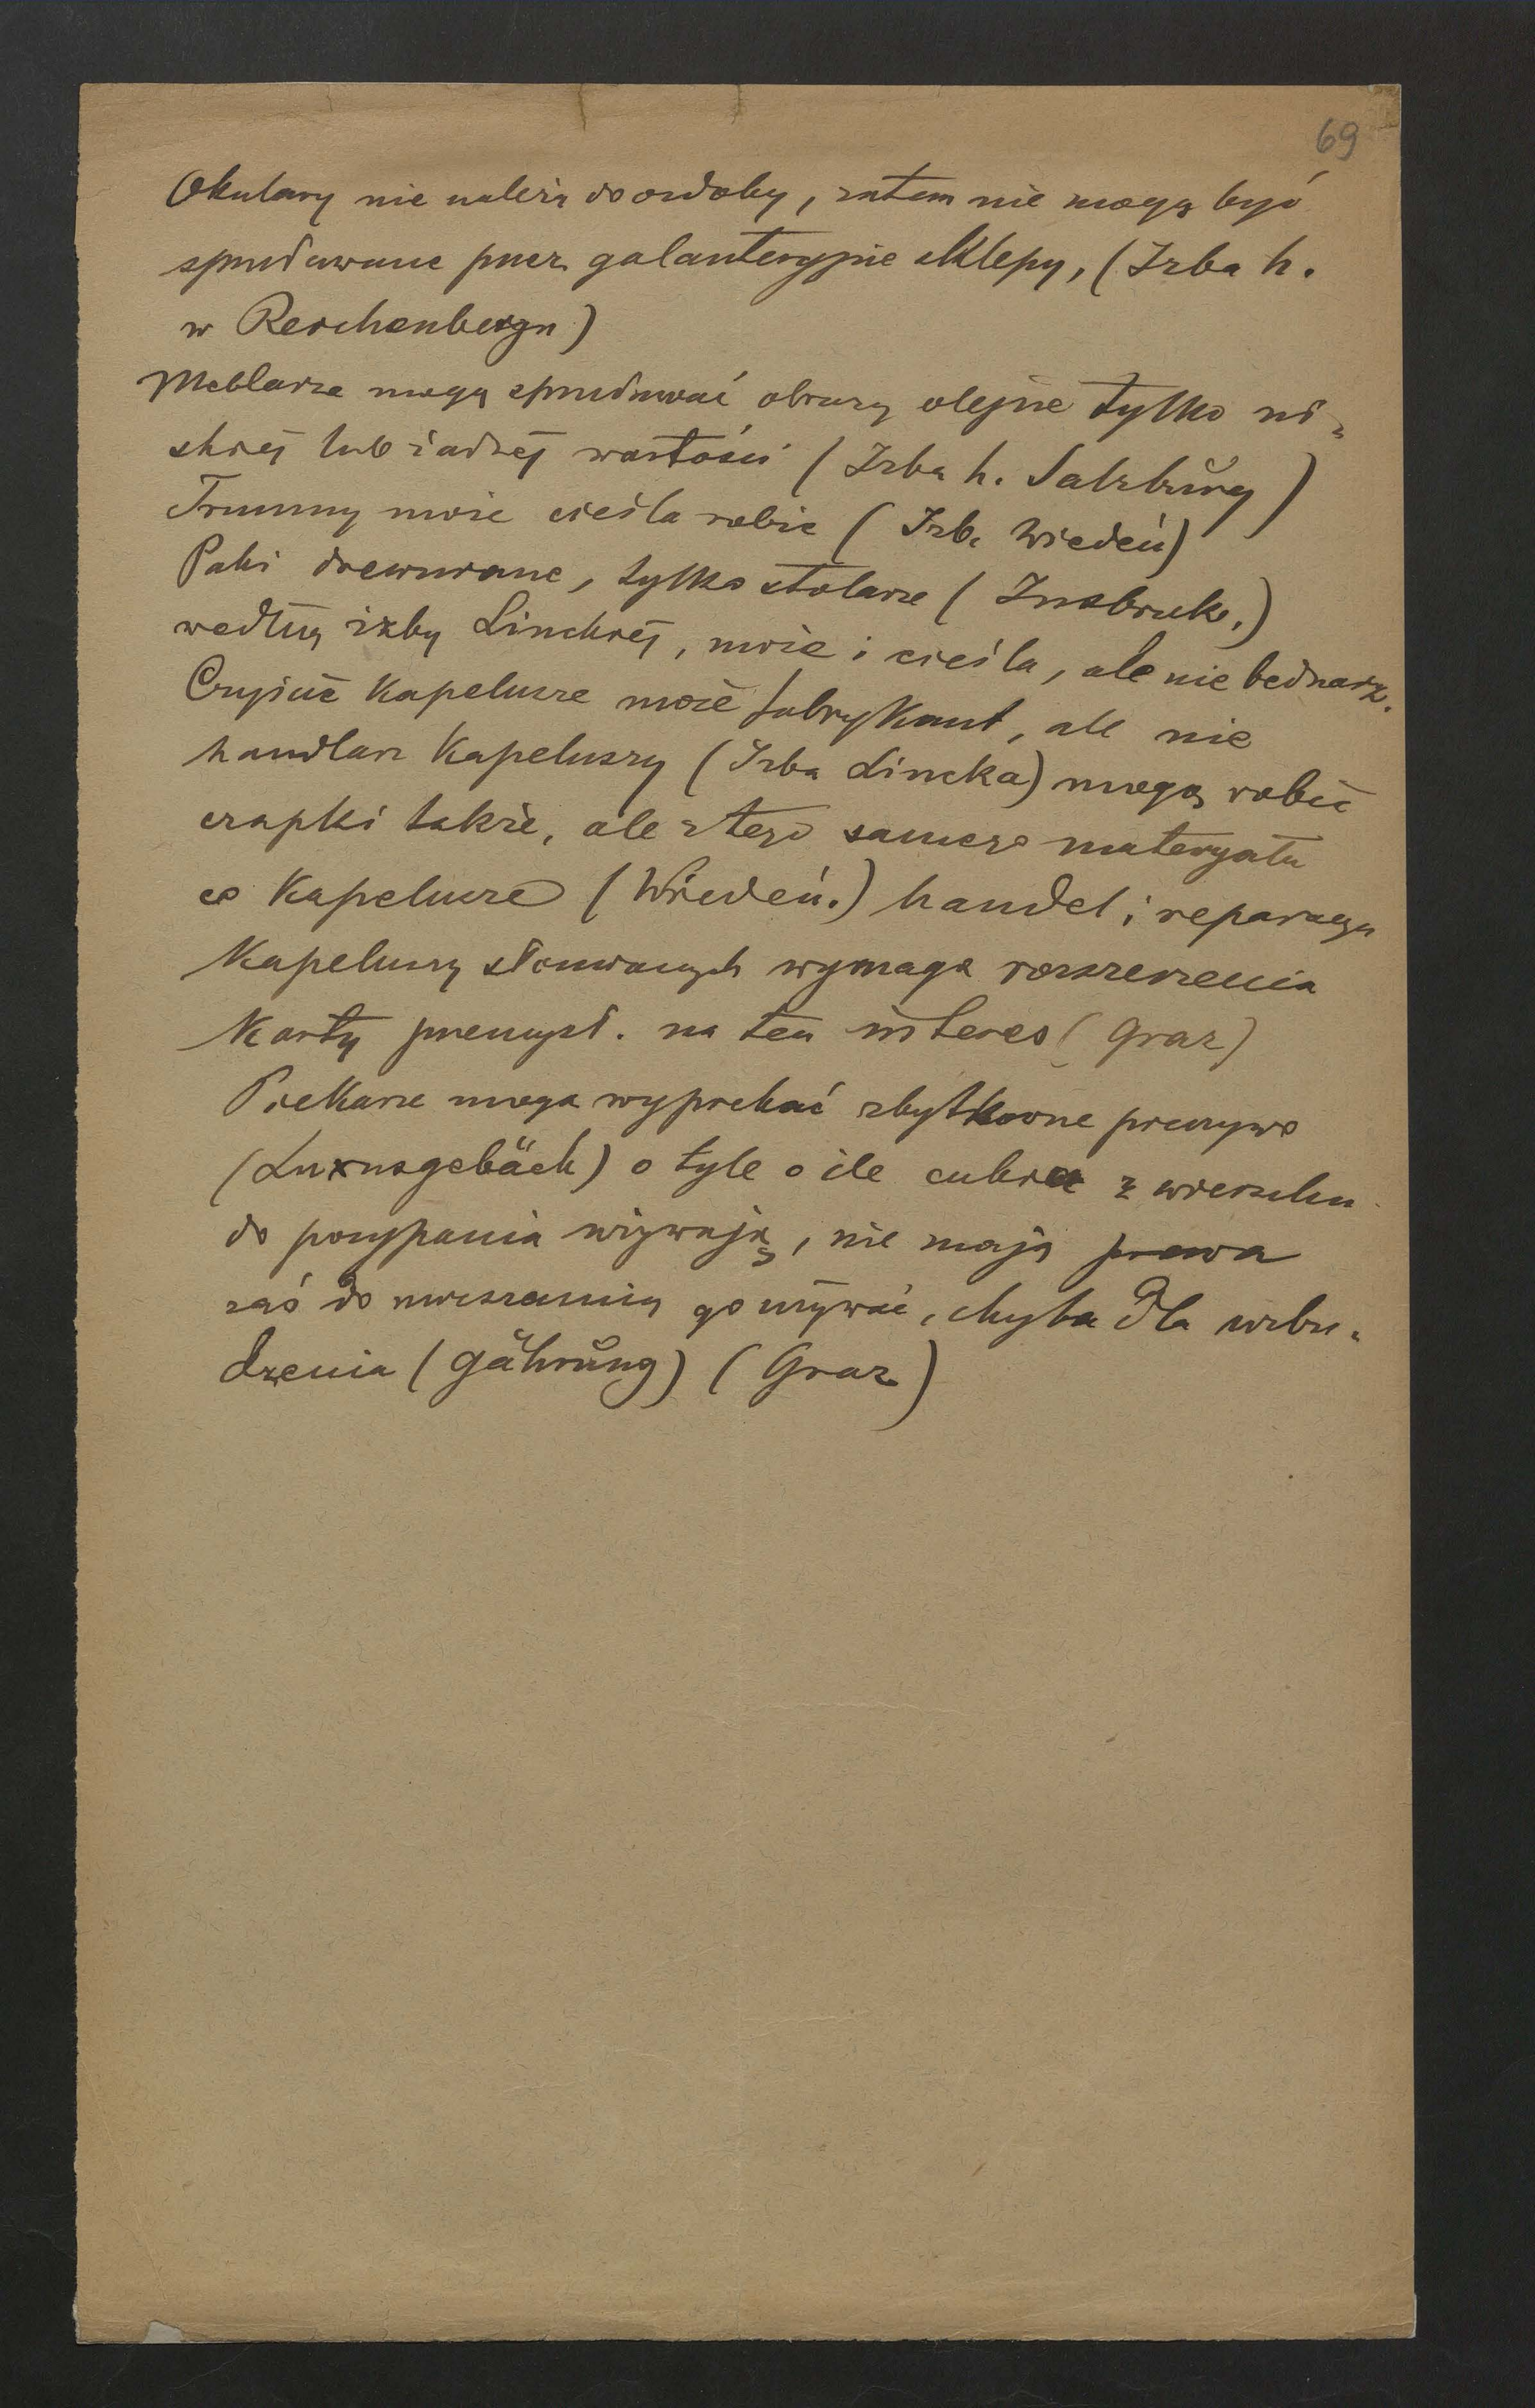 69
Okulary nie należą do ozdoby, zatem nie mogą być
sprzedawane przez galanteryjne sklepy, (Izba h.
w Reichenbergu)
Meblarze mogą sprzedawać obrazy olejne tylko ni-
skiej lub żadnej wartości (Izba h. Salzburg)
Trumny może cieśla robić (Izb. Wiedeń)
Paki drewniane, tylko stolarze (Insbruk.)
według izby Linckiej, może i cieśla, ale nie bednarz.
Czyścić kapelusze może fabrykant, ale nie
handlarz kapeluszy (Izba Lincka) mogą robić
czapki także, ale z tego samego materyału
co kapelusze (Wiedeń.) handel i reparacya
kapeluszy słomianych wymaga rozszerzenia
karty przemysł. na ten interes (Graz)
Piekarze mogą wypiekać zbytkowne pieczywo
(Luxusgebäck) o tyle o ile cukru z wierzchu
do posypania używają, nie mają prawa
zaś do mieszania go używać, chyba dla wzbu-
dzenia (Gährung) (Graz)